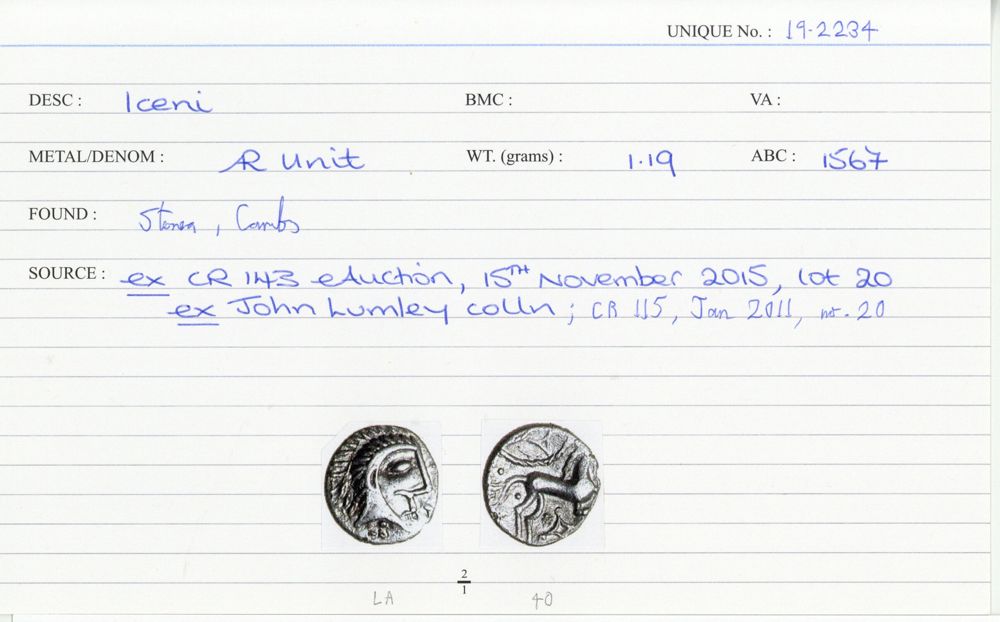 UNIQUE No. : 19-2234
DESC : Iceni BMC : VA :
METAL/DENOM : AR Unit WT. (grams) : 1.19 ABC : 1567
FOUND : Stonea, Cambs
SOURCE : ex CR 143 eAuction, 15TH November 2015, lot 20
ex John Lumley colln; CR 115, Jan 2011, no. 20
2
1
LA 40